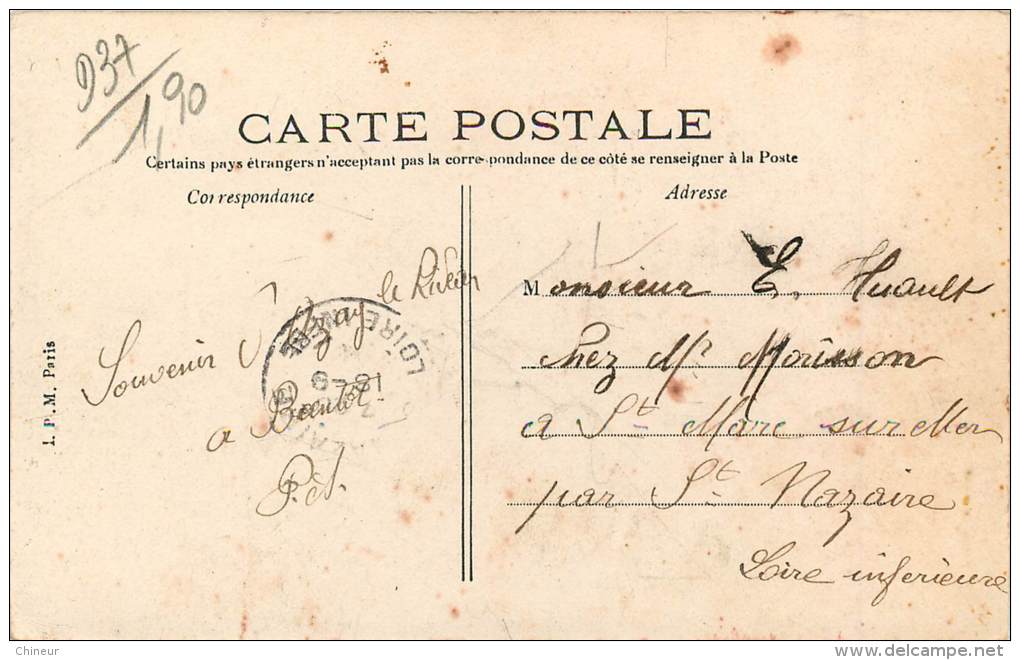 937/1,90
CARTE POSTALE
Certains pays étrangers n'acceptant pas la correspondance de ce côté se renseigner à la Poste
Correspondance
Adresse
Souvenir d'Azay le Rideau
a Bientôt
Monsieur E. Huault
chez Mr Morisson
a St Marc sur Mer
par St Nazaire
Loire inferieure
LOIRE INFRE
18-8
J. P. M. Paris
Chineur
www.delcampe.net